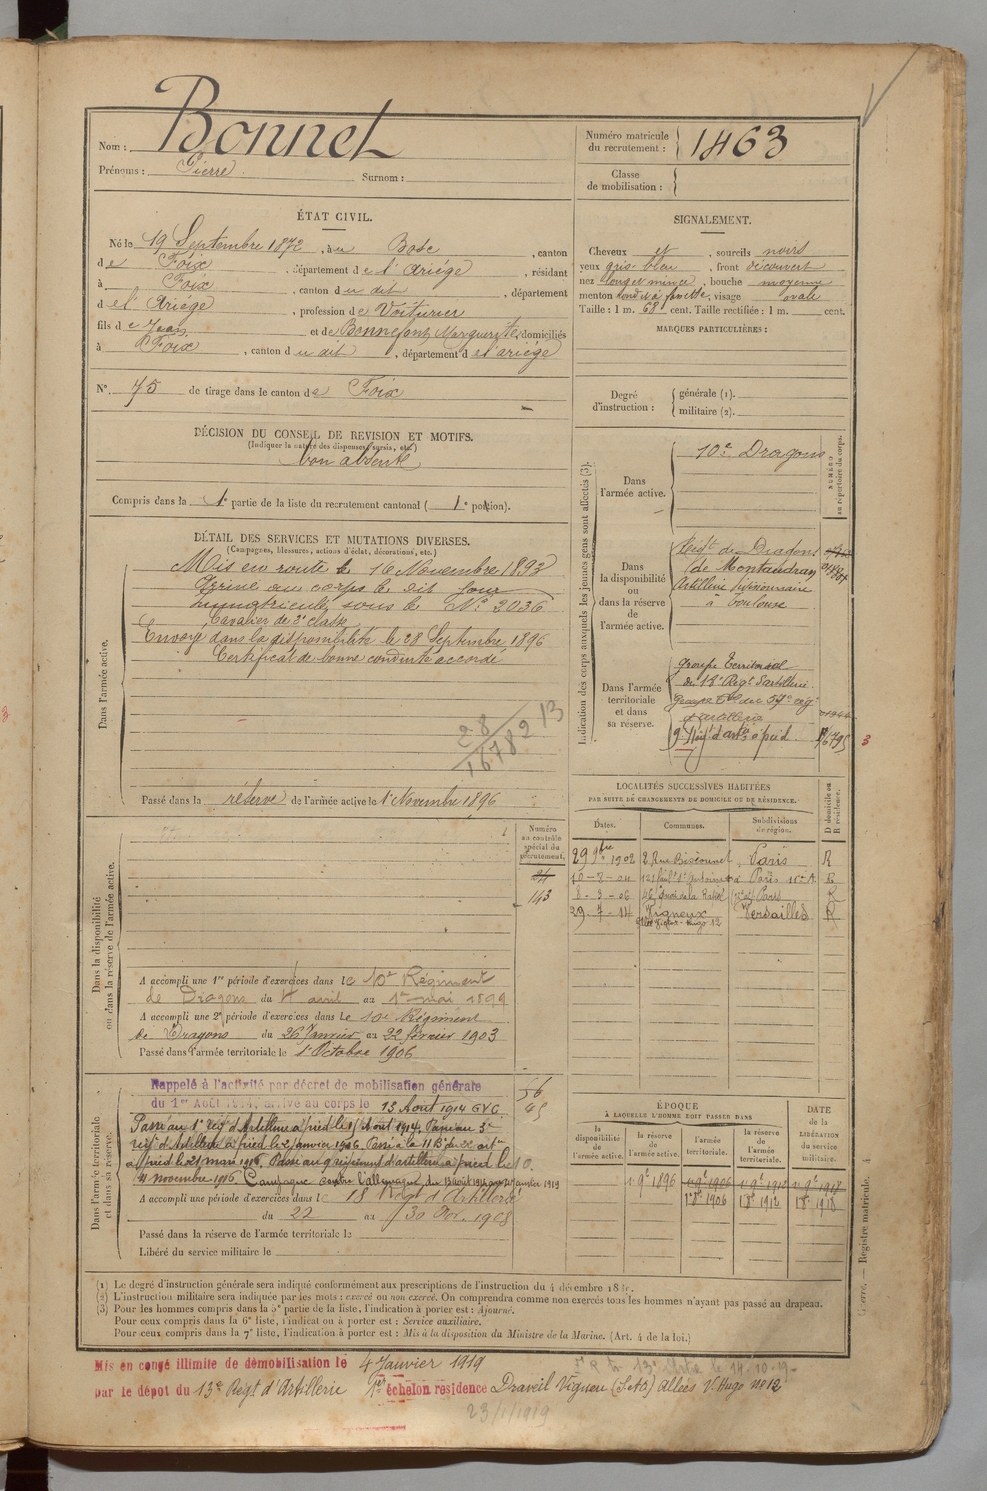 Nom : Bonnet
Prénoms : Pierre Surnom :
Numéro matricule du recrutement : 1463
Classe de mobilisation :
ÉTAT CIVIL.
Né le 19 Septembre 1872, à au Bosc, canton
de Foix, département de l'Ariége, résidant
à Foix, canton du dit, département
de l'Ariége, profession de Voiturier
fils de Jean et de Bonnefont Marguerite, domiciliés
à Foix, canton du dit, département de l'ariége
N° 75 de tirage dans le canton de Foix
SIGNALEMENT.
Cheveux et, sourcils noirs
yeux gris-bleu, front découvert
nez long et mince, bouche moyenne
menton rond et à fossette, visage ovale
Taille : 1 m. 68 cent. Taille rectifiée : 1 m. cent.
MARQUES PARTICULIÈRES :
Degré d'instruction :
générale (1).
militaire (2).
DÉCISION DU CONSEIL DE REVISION ET MOTIFS.
(Indiquer la nature des dispenses, sursis, etc.)
bon absent
Compris dans la 1e partie de la liste du recrutement cantonal ( 1e portion).
DÉTAIL DES SERVICES ET MUTATIONS DIVERSES.
(Campagnes, blessures, actions d'éclat, décorations, etc.)
Dans l'armée active.
Mis en route le 16 Novembre 1893
Arrivé au corps le dit jour
immatriculé sous le N° 2036
Cavalier de 2e classe
Envoyé dans la disponibilité le 28 Septembre 1896
Certificat de bonne conduite accordé
28 13
16782
Passé dans la réserve de l'armée active le 1er Novembre 1896
Indication des corps auxquels les jeunes gens sont affectés (3).
NUMÉRO au répertoire du corps.
Dans l'armée active.
10e Dragons
Dans la disponibilité ou dans la réserve de l'armée active.
Régt de Dragons
de Montauban
Artillerie divisionnaire
à Toulouse
Dans l'armée territoriale et dans sa réserve.
groupe Territorial
du 18e Régt d'artillerie
Groupe Tal du 57e rég.
d'artillerie
9 Régt d'artie à pied
3
LOCALITÉS SUCCESSIVES HABITÉES
PAR SUITE DE CHANGEMENTS DE DOMICILE OU DE RÉSIDENCE.
Dates. Communes. Subdivisions de région. D domicile ou R résidence.
29 9bre 1902 2 Rue Paris R
10-8-04 121 Faubg St Antoine à Paris 11e A. R
8-3-06 46 Quai de la Rapée Paris R
29-7-14 Vigneux Versailles R
allée Victor-Hugo 12
Dans la disponibilité ou dans la réserve de l'armée active.
Numéro au contrôle spécial du recrutement.
143
A accompli une 1re période d'exercices dans le 10e Régiment
de Dragons du 4 avril au 1er mai 1899
A accompli une 2e période d'exercices dans le 10e Régiment
de Dragons du 26 Janvier au 22 février 1903
Passé dans l'armée territoriale le 1er Octobre 1906
Dans l'armée territoriale et dans sa réserve.
Rappelé à l'activité par décret de mobilisation générale
du 1er Août 1914, arrivé au corps le 13 Août 1914 G.V.C.
Passé au 1er rég d'Artillerie à pied le Août 1914. Passé au 3e
rég d'Artillerie à pied le 2 Janvier 1916. Passé à la 11 Bie du
à pied le 21 mars 1916. Passé au 9 régiment d'artillerie à pied le 10.
11 novembre 1916. Campagne contre l'allemagne du 13 août 1914 au janvier 1919
A accompli une période d'exercices dans le 18 Régt d'Artillerie
du 22 au 30 1908
Passé dans la réserve de l'armée territoriale le
Libéré du service militaire le
ÉPOQUE
À LAQUELLE L'HOMME DOIT PASSER DANS
la disponibilité de l'armée active. la réserve de l'armée active. l'armée territoriale. la réserve de l'armée territoriale. DATE de la LIBÉRATION du service militaire.
1 9e 1896 1 9e 1906 1 9e 1912 1 9e 1918
1 8e 1906 1 8e 1912 1 8e 1918
(1) Le degré d'instruction générale sera indiqué conformément aux prescriptions de l'instruction du 4 décembre 18
(2) L'instruction militaire sera indiquée par les mots : exercé ou non exercé. On comprendra comme non exercés tous les hommes n'ayant pas passé au drapeau.
(3) Pour les hommes compris dans la 5e partie de la liste, l'indication à porter est : Ajourné.
Pour ceux compris dans la 6e liste, l'indication à porter est : Service auxiliaire.
Pour ceux compris dans la 7e liste, l'indication à porter est : Mis à la disposition du Ministre de la Marine. (Art. 4 de la loi.)
Registre matricule. 4
Mis en congé illimité de démobilisation le 4 Janvier 1919
par le dépôt du 13e Régt d'Artillerie 1er échelon residence Draveil Vigneu (S.&O) Allées V. Hugo No 12
23/1/1919